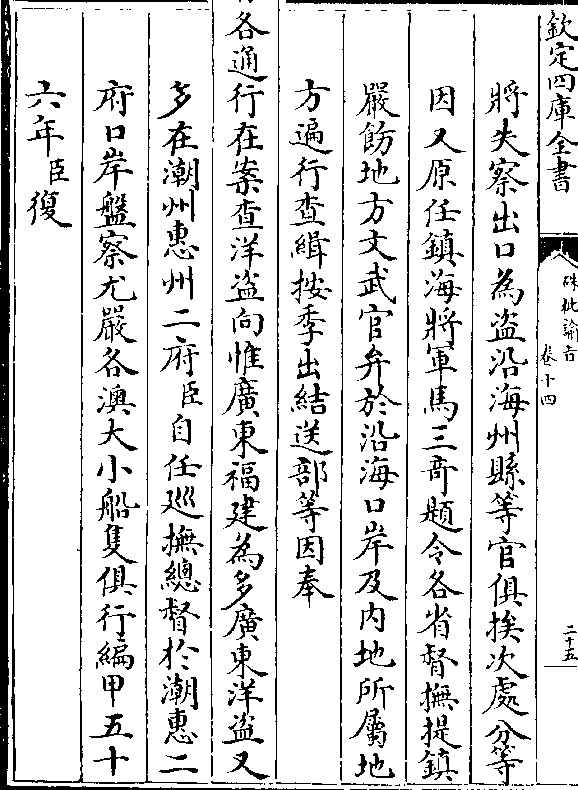 欽定四庫全書
硃批諭旨
卷十四
二十五
將失察出口為盜沿海州縣等官俱挨次處分等
因又原任鎮海將軍馬三奇題令各省督撫提鎮
嚴飭地方文武官弁於沿海口岸及内地所屬地
方遍行查緝按季出結送部等因奉
各通行在案查洋盜向惟廣東福建為多廣東洋盜又
多在潮州惠州二府臣自任廵撫總督於潮惠二
府口岸盤察尤嚴各澳大小船隻俱行編甲五十
六年臣復